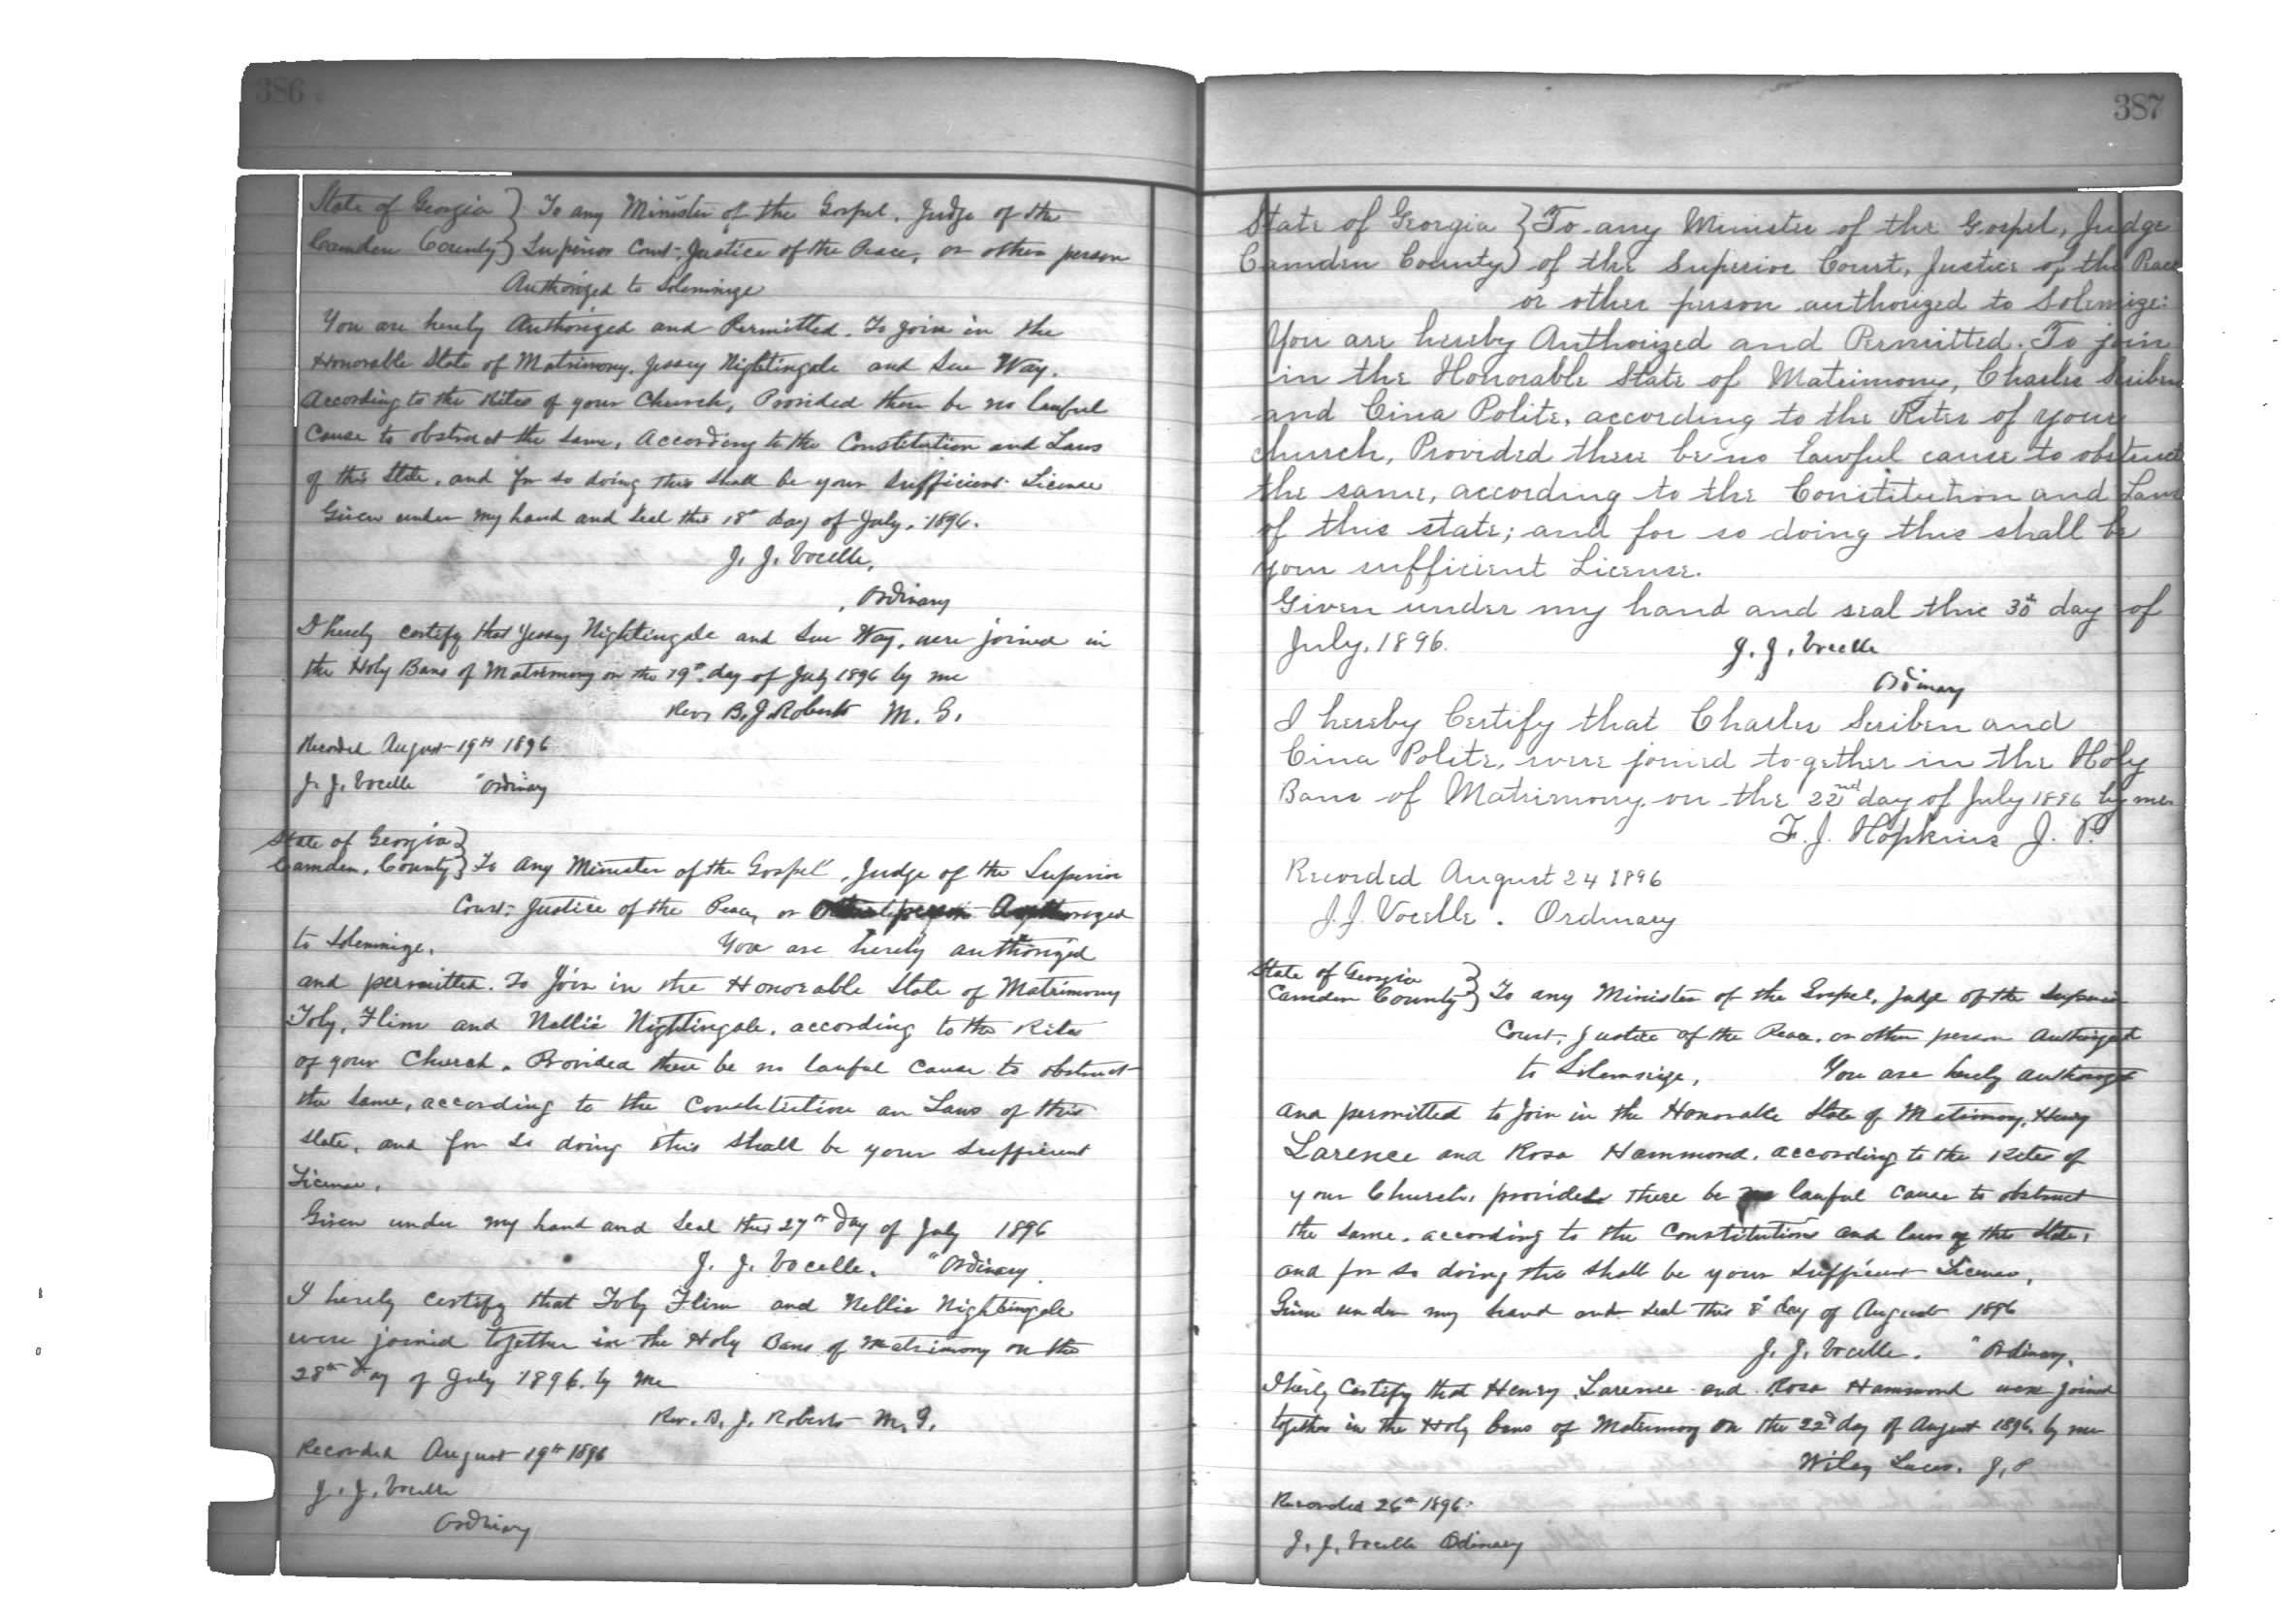 386
State of Georgia } To any Minister of the Gospel, Judge of the
Camden County } Superior Court, Justice of the Peace, or other person
Authorized to Solemnize
You are herely Authorized and Permitted. To join in the
Honorable State of Matrimony. Jessey Nightingale and Sue Way.
According to the Rites of your Church, Provided there be no lawful
Cause to obstruct the same, According to the Constitution and Laws
of this State, and for so doing this shall be your sufficient License
Given under my hand and seal this 18th day of July, 1896.
J. J. Vocelle,
Ordinary
I herely certify that Jessey Nightingale and Sue Way, were joined in
the Holy Bans of Matrimony on the 19th day of July 1896 by me
Rev B. J. Roberts M. G.
Recorded August 19th 1896
J. J. Vocelle "Ordinary
State of Georgia }
Camden, County } To any Minister of the Gospel, Judge of the Superior
Court, Justice of the Peace, or other person Authorized
to Solemnize. You are herely authorized
and permitted. To Join in the Honorable State of Matrimony
Toby, Flim and Nellie Nightingale, according to the Rites
of your Church. Provided there be no lawful Cause to obstruct
the same, according to the Constitution an Laws of this
state, and for so doing this shall be your sufficient
License.
Given under my hand and seal this 27th day of July 1896
J. J. Vocelle. "Ordinary.
I herely certify that Toby Flim and Nellie Nightingale
were joined together in the Holy Bans of Matrimony on the
28th day of July 1896. by me
Rev. B. J. Roberts M. G.
Recorded August 19th 1896
J. J. Vocelle
Ordinary
387
State of Georgia } To any Minister of the Gospel, Judge
Camden County } of the Superior Court, Justice of the Peace
or other person authorized to Solemize:
You are hereby Authorized and Permitted. To join
in the Honorable State of Matrimony, Charles Scriben
and Cina Polite, according to the Rites of your
church, Provided there be no lawful cause to obstruct
the same, according to the Constitution and Laws
of this state; and for so doing this shall be
your sufficient License.
Given under my hand and seal this 30th day of
July, 1896. J. J. Vocelle
Ordinary
I hereby Certify that Charles Scriben and
Cina Polite, were joined to-gether in the Holy
Bans of Matrimony on the 22nd day of July 1896 by me
F. J. Hopkins J. P.
Recorded August 24 1896
J. J. Vocelle. Ordinary
State of Georgia }
Camden County } To any Minister of the Gospel, Judge of the Superior
Court, Justice of the Peace, or other person Authorized
to Solemnize, You are herely authorized
and permitted to join in the Honorable State of Matrimony, Henry
Larence and Rosa Hammond, according to the Rites of
your Church, provided there be no lawful cause to obstruct
the same, according to the Constitution and laws of this State,
and for so doing this shall be your sufficient License.
Given under my hand and seal this 8th day of August 1896
J. J. Vocelle. "Ordinary.
I herely Certify that Henry Larence and Rosa Hammond were joined
together in the Holy bans of Matrimony on the 22d day of August 1896, by me
Wiley J. P
Recorded 26th 1896.
J. J. Vocelle Odinary